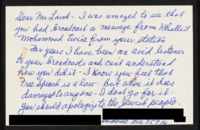 Dear Mr Land - I was amazed to see that
you had broadcast a message from Khallid
Mohammed twice from your station
For years I have been an avid listener
to your broadcasts and can't understand
how you did it - I know you feel that
free speech is a law - but when it does
damage to anyone - I don't go for it
You should apologize to the Jewish people.